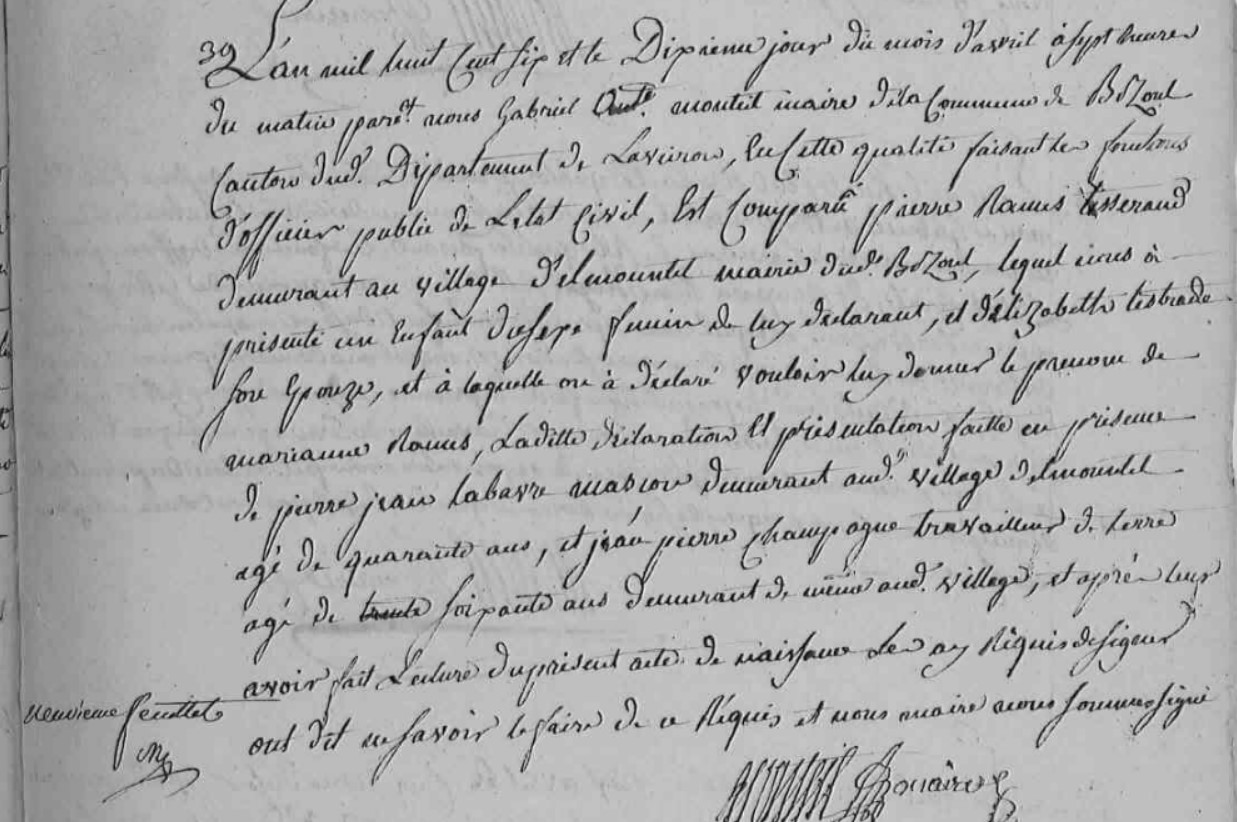 39 L'an mil huit Cent six et le Dixieme jour du mois d'avril à sept heures
du matin par.et nous Gabriel monteil maire dela Commune de BoZoul
Canton dud. Département de Laveiron, En Cette qualité faisant les fonctions
d'officier public de Letat Civil, Est Comparu pierre Ramus tisserand
demurant au village d'elmountel mairie dud. BoZoul, lequel nous à
présenté un Enfant du sexe feminin de luy déclarant, et d'élizabeth testrade
son Epouze, et à laquelle on à déclaré vouloir luy donner le prenom de
marianne Ramus, Laditte déclaration Et présentation faitte en présence
de pierre jean Labavre masson demurant aud. village d'elmountel
agé de quarante ans, et jean pierre Champagne travailleur de terre
agé de trente soixante ans demurant de même aud. village, et après leur
avoir fait Lecture du présent acte de naissance Les ay Réquis de signer
ont dit ne savoir le faire de ce Réquis et nous maire nous sommes signé
neuvieme feuillet
monteil maire